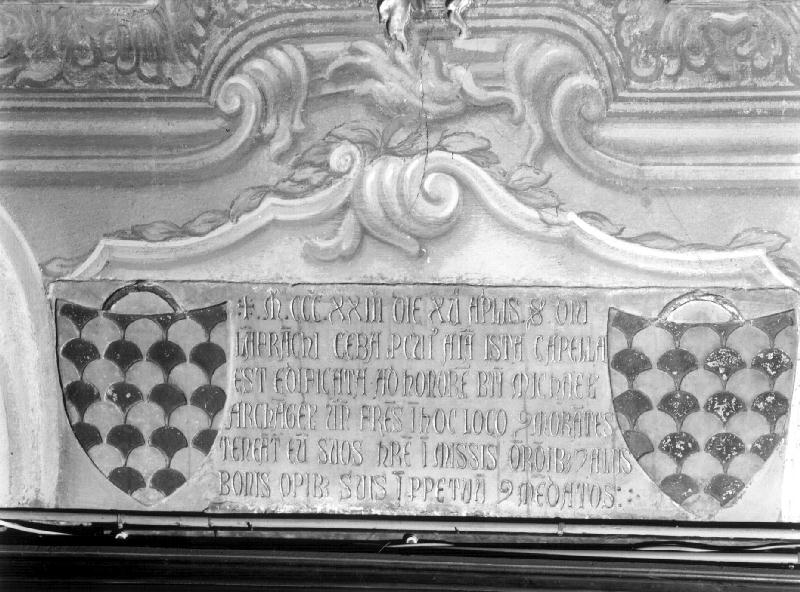 + M̄. CCC. XXIII DIE XII APLIS. & DNI
LAFRĀChI CEBA. P CUI' AĪA ISTA CAPELLA
EST EDIFICATA AD hONORĒ BTĪ MIChAEL
ARChĀGEL' UN̄ FRES Ī hOC LOCO 9MORĀTES
TENEĀT EŪ SUOS hRĒ Ī MISSIS ORŌIB; 7 ALIIS
BONIS OPIB; SUIS Ī PPETUŪ 9MEDATOS :·